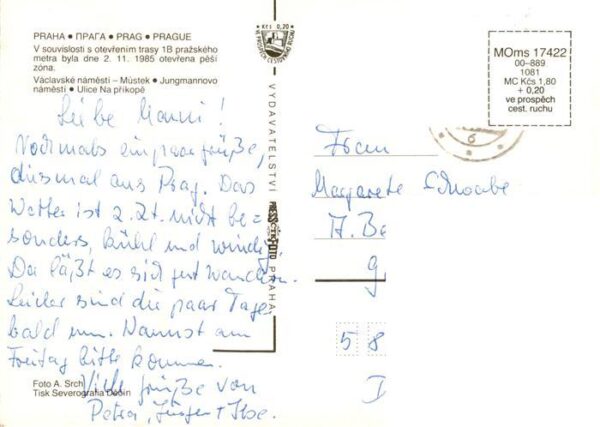 PRAHA • ПРАГА • PRAG • PRAGUE
V souvislosti s otevřením trasy 1B pražského
metra byla dne 2. 11. 1985 otevřena pěší
zóna.
Václavské náměstí – Můstek • Jungmannovo
náměstí • Ulice Na příkopě
Liebe Manni!
Nochmals ein paar Grüße,
diesmal aus Prag. Das
Wetter ist z. Zt. nicht be=
sonders, kühl und windig.
Da läßt es sich gut wandern.
Leider sind die paar Tage
bald um. Kannst am
Freitag bitte kommen.
Viele Grüße von
Petra, Jürgen + Ilse.
Foto A. Srch
Tisk Severografia Děčín
Kčs 0,20
VE PROSPĚCH CESTOVNÍHO RUCHU
VYDAVATELSTVÍ
PRESSFOTO
PRAHA
MOms 17422
00–889
1081
MC Kčs 1,80
+ 0,20
ve prospěch
cest. ruchu
6
Frau
Margarete Schwabe
A. Be
g
5 8
I